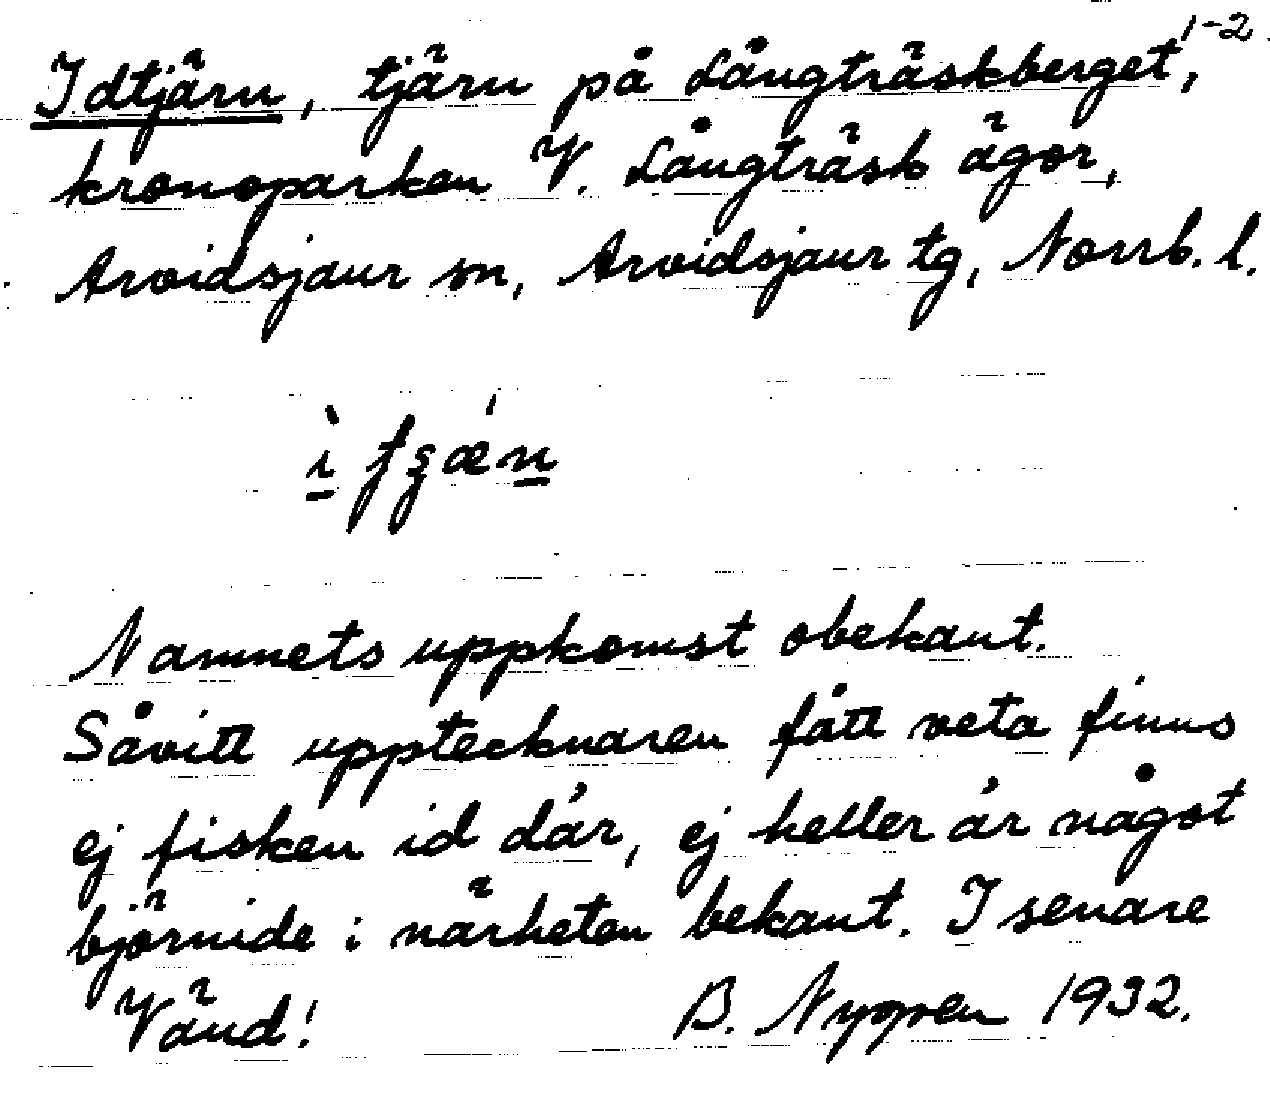 1-2.
Idtjärn, tjärn på Långträskberget,
kronoparken V. Långträsk ägor,
Arvidsjaur sn, Arvidsjaur tg, Norrb. l.
Namnets uppkomst obekant.
Såvitt upptecknaren fått veta finns
ej fisken id där, ej heller är något
björnide i närheten bekant. I senare
Vänd! B. Nygren 1932.